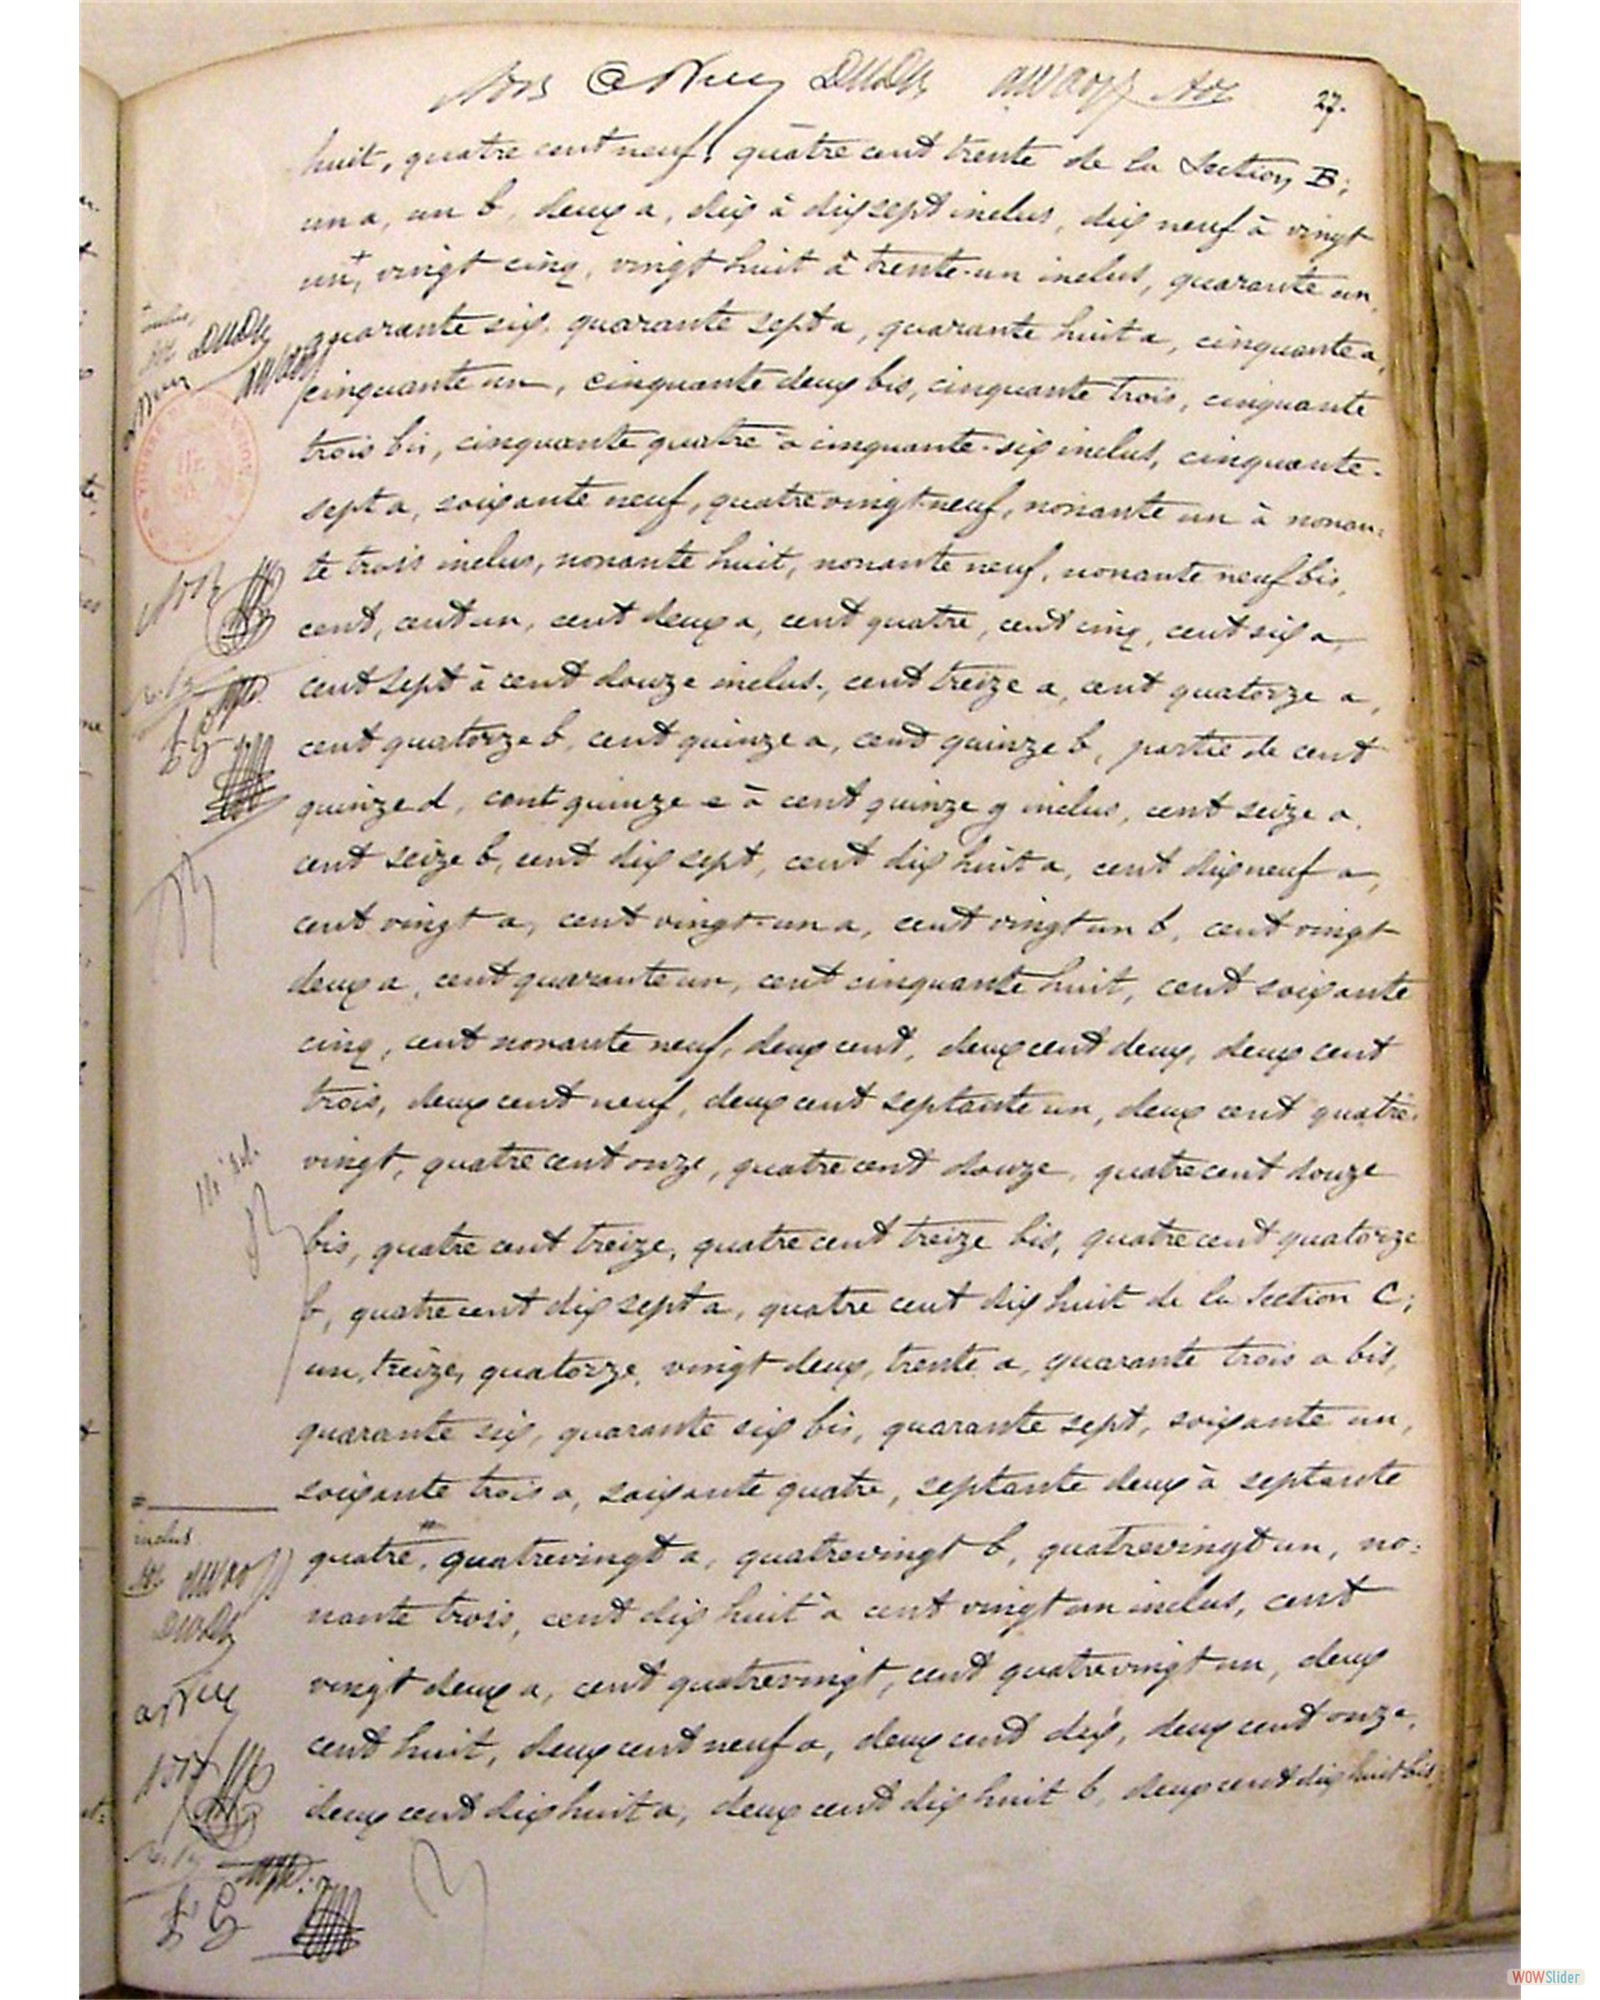 27.
huit, quatre cent neuf, quatre cent trente de la Section B;
un a, un b, deux a, dix à dix sept inclus, dix neuf à vingt
un+, vingt cinq, vingt huit à trente-un inclus, quarante un,
quarante six, quarante sept a, quarante huit a, cinquante a,
cinquante un, cinquante deux bis, cinquante trois, cinquante
trois bis, cinquante quatre à cinquante-six inclus, cinquante-
sept a, soixante neuf, quatre vingt-neuf, nonante un à nonan=
te trois inclus, nonante huit, nonante neuf, nonante neuf bis,
cent, cent un, cent deux a, cent quatre, cent cinq, cent six a,
cent sept à cent douze inclus, cent treize a, cent quatorze a,
cent quatorze b, cent quinze a, cent quinze b, partie de cent
quinze d, cent quinze e à cent quinze g inclus, cent seize a,
cent seize b, cent dix sept, cent dix huit a, cent dix neuf a,
cent vingt a, cent vingt-un a, cent vingt un b, cent vingt
deux a, cent quarante un, cent cinquante huit, cent soixante
cinq, cent nonante neuf, deux cent, deux cent deux, deux cent
trois, deux cent neuf, deux cent septante un, deux cent quatre
vingt, quatre cent onze, quatre cent douze, quatre cent douze
bis, quatre cent treize, quatre cent treize bis, quatre cent quatorze
b, quatre cent dix sept a, quatre cent dix huit de la Section C;
un, treize, quatorze, vingt deux, trente a, quarante trois a bis,
quarante six, quarante six bis, quarante sept, soixante un,
soixante trois a, soixante quatre, septante deux à septante
quatre,= quatrevingt a, quatrevingt b, quatrevingt un, no=
nante trois, cent dix huit à cent vingt un inclus, cent
vingt deux a, cent quatrevingt, cent quatrevingt un, deux
cent huit, deux cent neuf a, deux cent dix, deux cent onze,
deux cent dix huit a, deux cent dix huit b, deux cent dix huit bis,
inclus,
=
inclus
WOWSlider